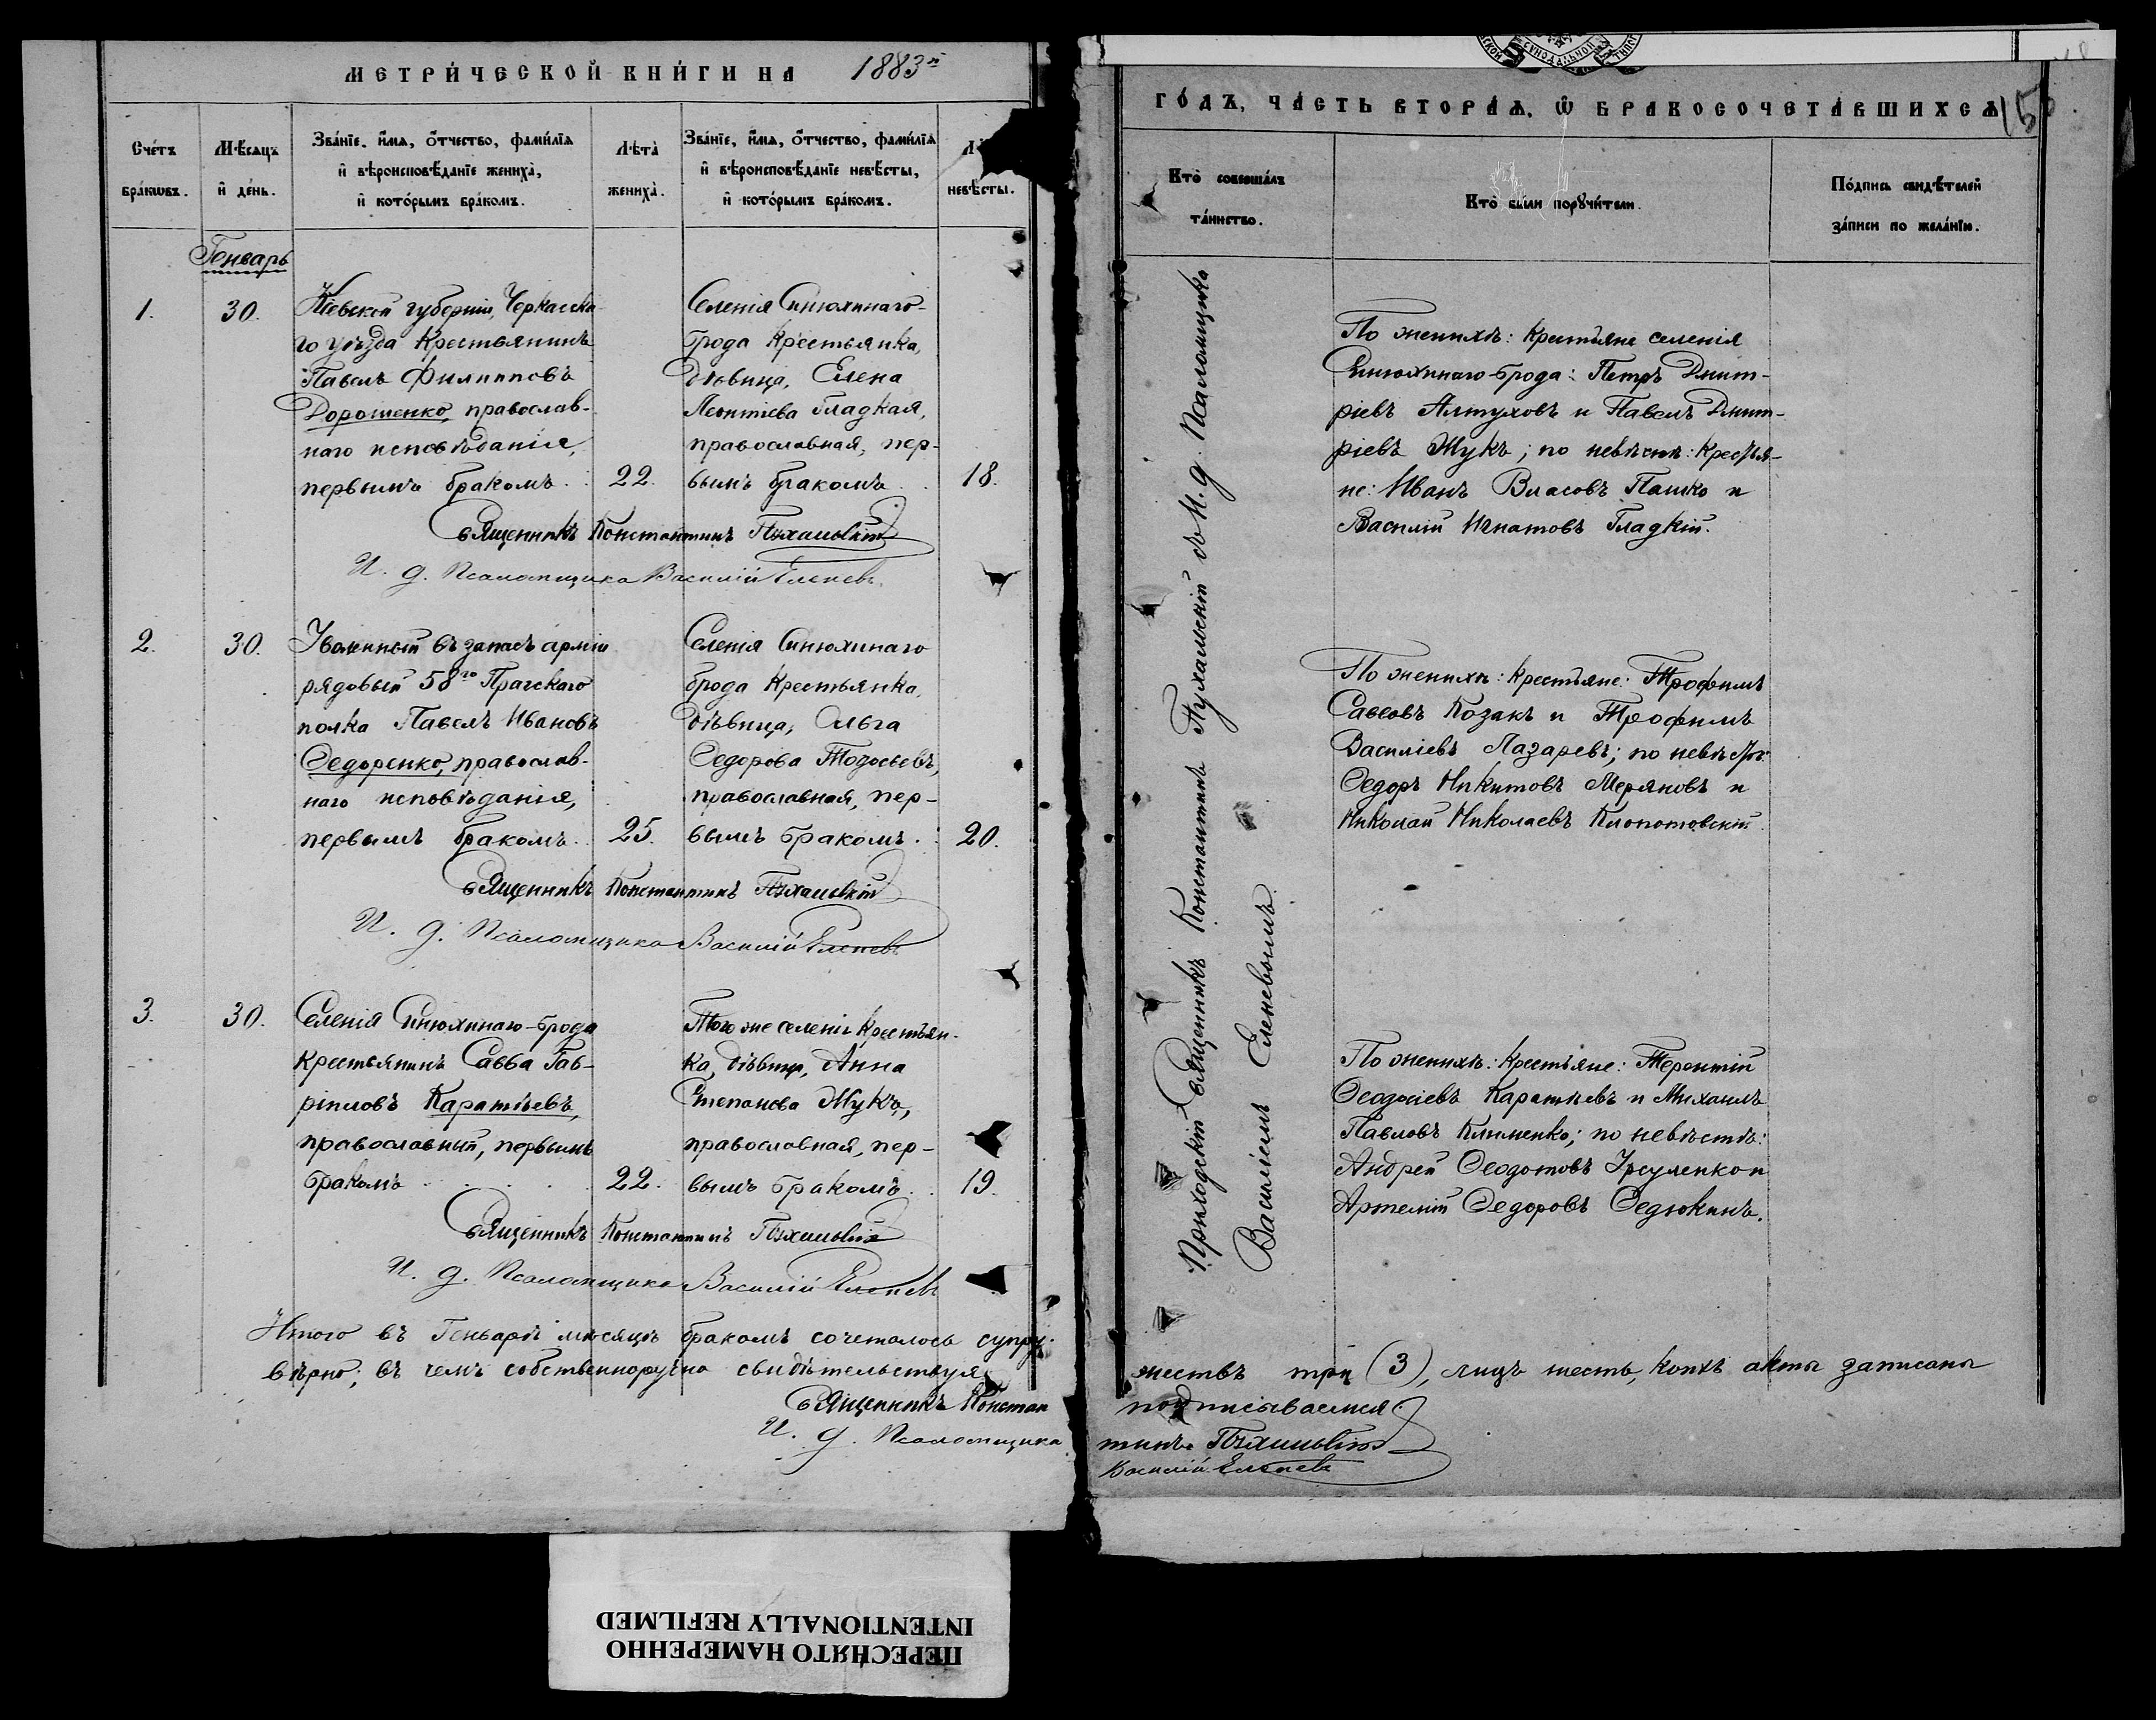 МЕТРИ́ЧЕСКОЙ КНИ́ГИ НА 1883й
Сче́тъ бра́кѡвъ.
Мѣ́сяцъ и҆ де́нь.
Зва́нїе, и҆́мѧ, ѻ҆́тчество, фами́лїѧ
и҆ вѣроисповѣ́данїе жениха̀,
и҆ кото́рымъ бра́комъ.
Лѣта̀ жениха̀.
Зва́нїе, и҆́мѧ, ѻ҆́тчество, фами́лїѧ
и҆ вѣроисповѣ́данїе невѣ́сты,
и҆ кото́рымъ бра́комъ.
невѣ́сты.
Генварь
1.
30.
Кіевской губерніи, Черкасска
го уѣзда Крестьянинъ
Павелъ Филипповъ
Дорошенко, православ-
наго исповѣданія,
первымъ бракомъ.
22.
Селенія Синюхинаго-
Брода Крестьянка,
дѣвица, Елена
Леонтіева Гладкая,
православная, пер-
вымъ бракомъ.
18.
Священникъ Константинъ Пухальскій
И. д. Псаломщика Василій Еленевъ
2.
30.
Уволенный въ запасъ арміи
рядовый 58го Прагскаго
полка Павелъ Ивановъ
Ѳедоренко, православ-
наго исповѣданія,
первымъ бракомъ.
25.
Селенія Синюхинаго
брода Крестьянка,
дѣвица, Ольга
Ѳедорова
православная, пер-
вымъ бракомъ.
20.
Священникъ Константинъ Пухальскій
И. д. Псаломщика Василій Еленевъ
3.
30.
Селенія Синюхинаго-брода
крестьянинъ Савва Гав-
ріиловъ Каратѣевъ,
православный, первымъ
бракомъ
22.
Того же селенія крестьян-
ка, дѣвица, Анна
Степанова Жукъ,
православная, пер-
вымъ бракомъ.
19.
Священникъ Константинъ Пухальскій
И. д. Псаломщика Василій Еленевъ
Итого въ Генварѣ мѣсяцѣ бракомъ сочеталось супру-
вѣрно; въ чемъ собственноручно свидѣтельствуя
Священникъ Констан
И. д. Псаломщика
ГО́ДЪ, ЧА́СТЬ ВТОРА́Ѧ, Ѽ БРАКОСОЧЕТА́ВШИХСѦ
15
Кто̀ соверша́лъ
та́инство.
Кто̀ бы́ли порꙋчи́тели.
По́дпись свидѣ́телей
за́писи по жела́нїю.
Приходскій Священникъ Константинъ Пухальскій съ И. д. Псаломщика
Василіемъ Еленевымъ.
По женихѣ: Крестьяне селенія
Синюхинаго-брода: Петръ Дмит-
ріевъ Алтуховъ и Павелъ Дмит-
ріевъ Жукъ; по невѣстѣ: Крестья-
не: Иванъ Власовъ Пашко и
Василій Игнатовъ Гладкій.
По женихѣ: Крестьяне: Трофимъ
Савовъ Козакъ и Трофимъ
Василіевъ Лазаревъ; по невѣстѣ:
Ѳедоръ Никитовъ Меряновъ и
Николай Николаевъ Клопотовскій.
По женихѣ: Крестьяне: Терентій
Ѳеодосіевъ Каратѣевъ и Михаилъ
Павловъ Клименко; по невѣстѣ:
Андрей Ѳеодотовъ Урсуленко и
Артемій Ѳедоровъ Ѳедюкинъ.
жествъ три (3), лицъ шесть, коихъ акты записаны
подписываемся:
тинъ Пухальскій
Василій Еленевъ
ПЕРЕСНЯТО НАМЕРЕННО
INTENTIONALLY REFILMED